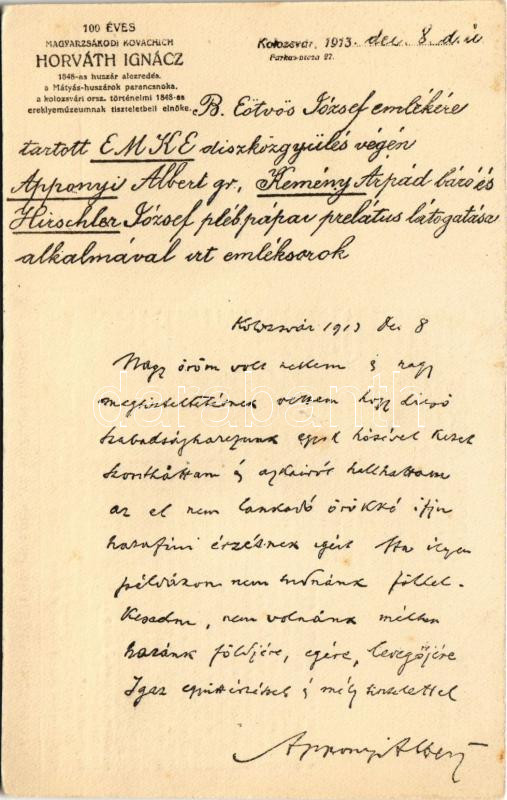 100 ÉVES
MAGYARZSÁKODI KOVACHICH
HORVÁTH IGNÁCZ
1848-as huszár alezredés.
a Mátyás-huszárok parancsnoka.
a kolozsvári orsz. történelmi 1848-as
ereklyemúzeumnak tiszteletbeli elnöke.
Kolozsvár, 1913. dec. 8. d.u
Farkas-utcza 27.
B. Eötvös József emlékére
tartott EMKE diszközgyülés végén
Apponyi Albert gr., Kemény Árpád báró és
Hirschler József pléb pápai prelátus látogatása
alkalmával irt emléksorok
Kolozsvár 1913 Dec 8
Nagy öröm volt nekem és nagy
megtiszteltetésnek vettem hogy dicső
szabadságharczunk egyik hősével kezet
szoríthattam és ajkairól hallhattam
az el nem lankadó örökké ifju
hazafini érzésnek igéit Ha ilyen
példákon nem tudnánk föllel-
kesedni, nem volnánk méltók
hazánk földjére, egére, levegőjére
Igaz együttérzéssel és mély tisztelettel
Apponyi Albert
darabanth